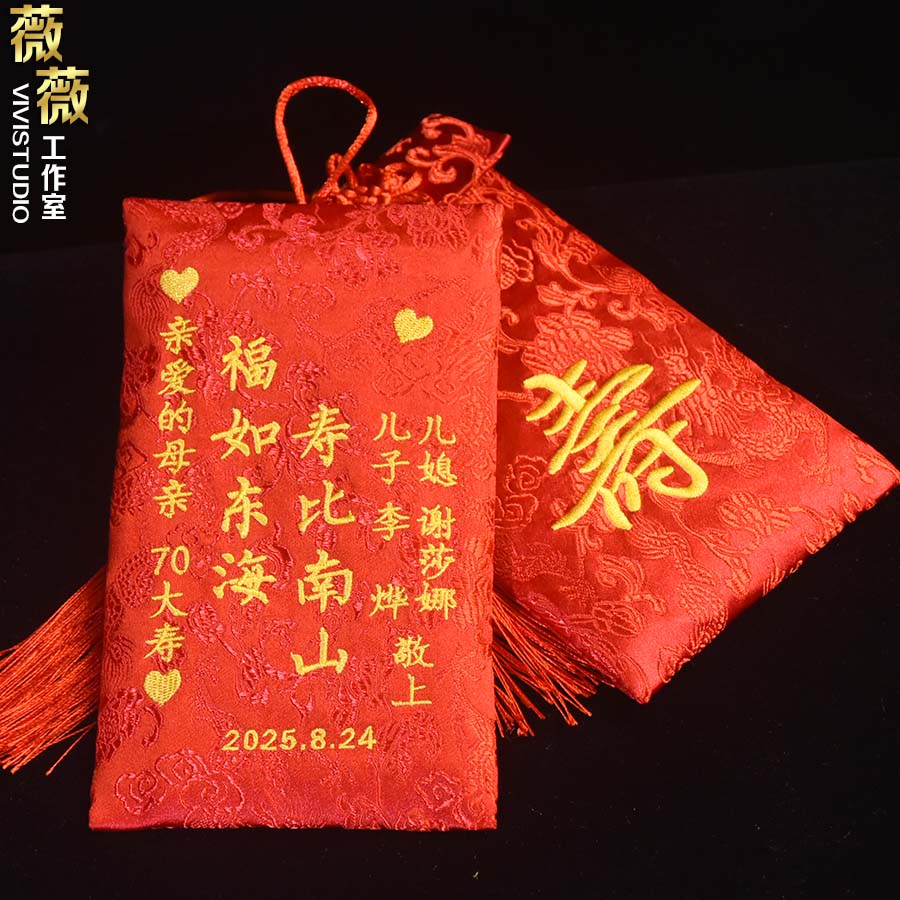 薇薇
工作室
VIVISTUDIO
亲爱的母亲 70大寿
福如东海
寿比南山
儿子李 烨
儿媳 谢莎娜
敬上
2025.8.24
寿